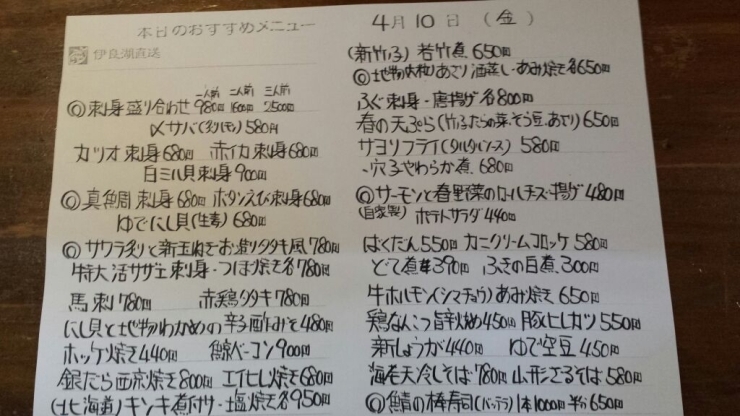 本日のおすすめメニュー
4月10日 (金)
伊良湖直送
一人前 二人前 三人前
◎刺身盛り合わせ 980円 1600円 2500円
〆サバ(炙りモ) 580円
カツオ刺身 680円 赤イカ刺身 680円
白ミル貝刺身 900円
◎真鯛刺身 680円 ボタンえび刺身 680円
ゆでにし貝(生姜) 680円
◎サワラ炙りと新玉ねぎお造りタタキ風 780円
特大活サザエ刺身・つぼ焼き各780円
馬刺 780円 赤鶏タタキ 780円
にし貝と地物わかめの辛子酢みそ 480円
ホッケ焼き 440円 鯨ベーコン 900円
銀だら西京焼き 800円 エイヒレ焼き 680円
(北海道)キンキ煮付け・塩焼き各950円
(新竹の子) 若竹煮 650円
◎地物大粒あさり酒蒸し・あみ焼き各650円
ふぐ刺身・唐揚げ各800円
春の天ぷら(竹の子.たらの菜.そら豆.あさり) 650円
サヨリフライ(タルタルソース) 580円
穴子やわらか煮 680円
◎サーモンと春野菜のロールチーズ揚げ 480円
(自家製) ポテトサラダ 440円
はくたん 550円 カニクリームコロッケ 580円
どて煮 390円 ふきの白煮 300円
牛ホルモン(シマチョウ)あみ焼き 650円
鶏なんこつ旨辛炒め 450円 豚ヒレカツ 550円
新しょうが 440円 ゆで空豆 450円
海老天冷しそば 780円 山形ざるそば 580円
◎鯖の棒寿司(バッテラ) 1本1000円 半分650円